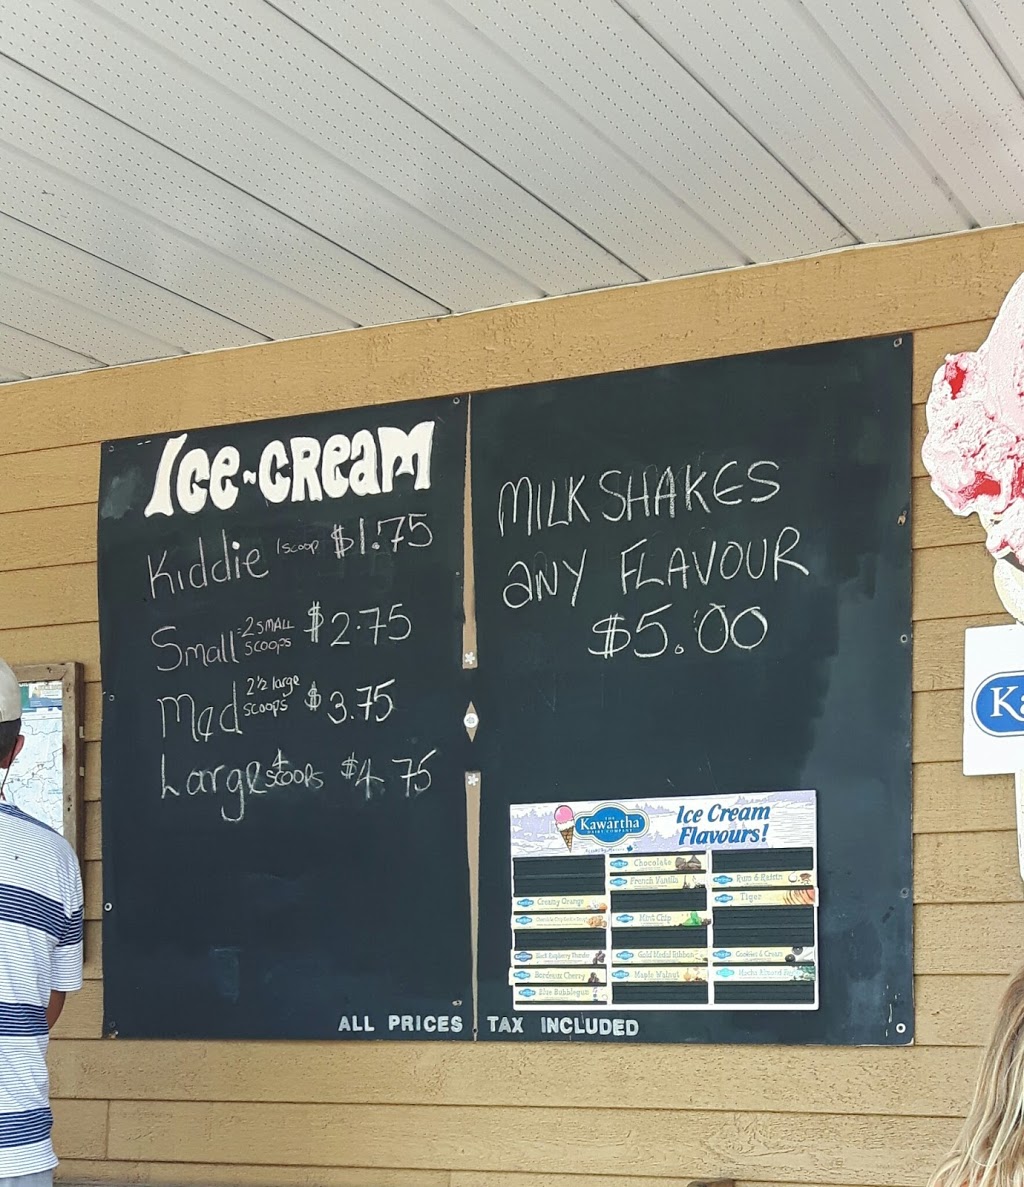 Ice-cream
Kiddie 1 scoop $1.75
Small =2 SMALL SCOOPS $2.75
Med 2½ large scoops $3.75
Large 4 scoops $4 75
MILKSHAKES
ANY FLAVOUR
$5.00
THE
Kawartha
DAIRY COMPANY
Ice Cream
Flavours!
Creamy Orange
Black Raspberry Thunder
Bordeaux Cherry
Blue Bubblegum
Chocolate
French Vanilla
Mint Chip
Gold Medal Ribbon
Maple Walnut
Rum & Raisin
Tiger
Cookies & Cream
Mocha Almond Fudge
ALL PRICES TAX INCLUDED
Ka